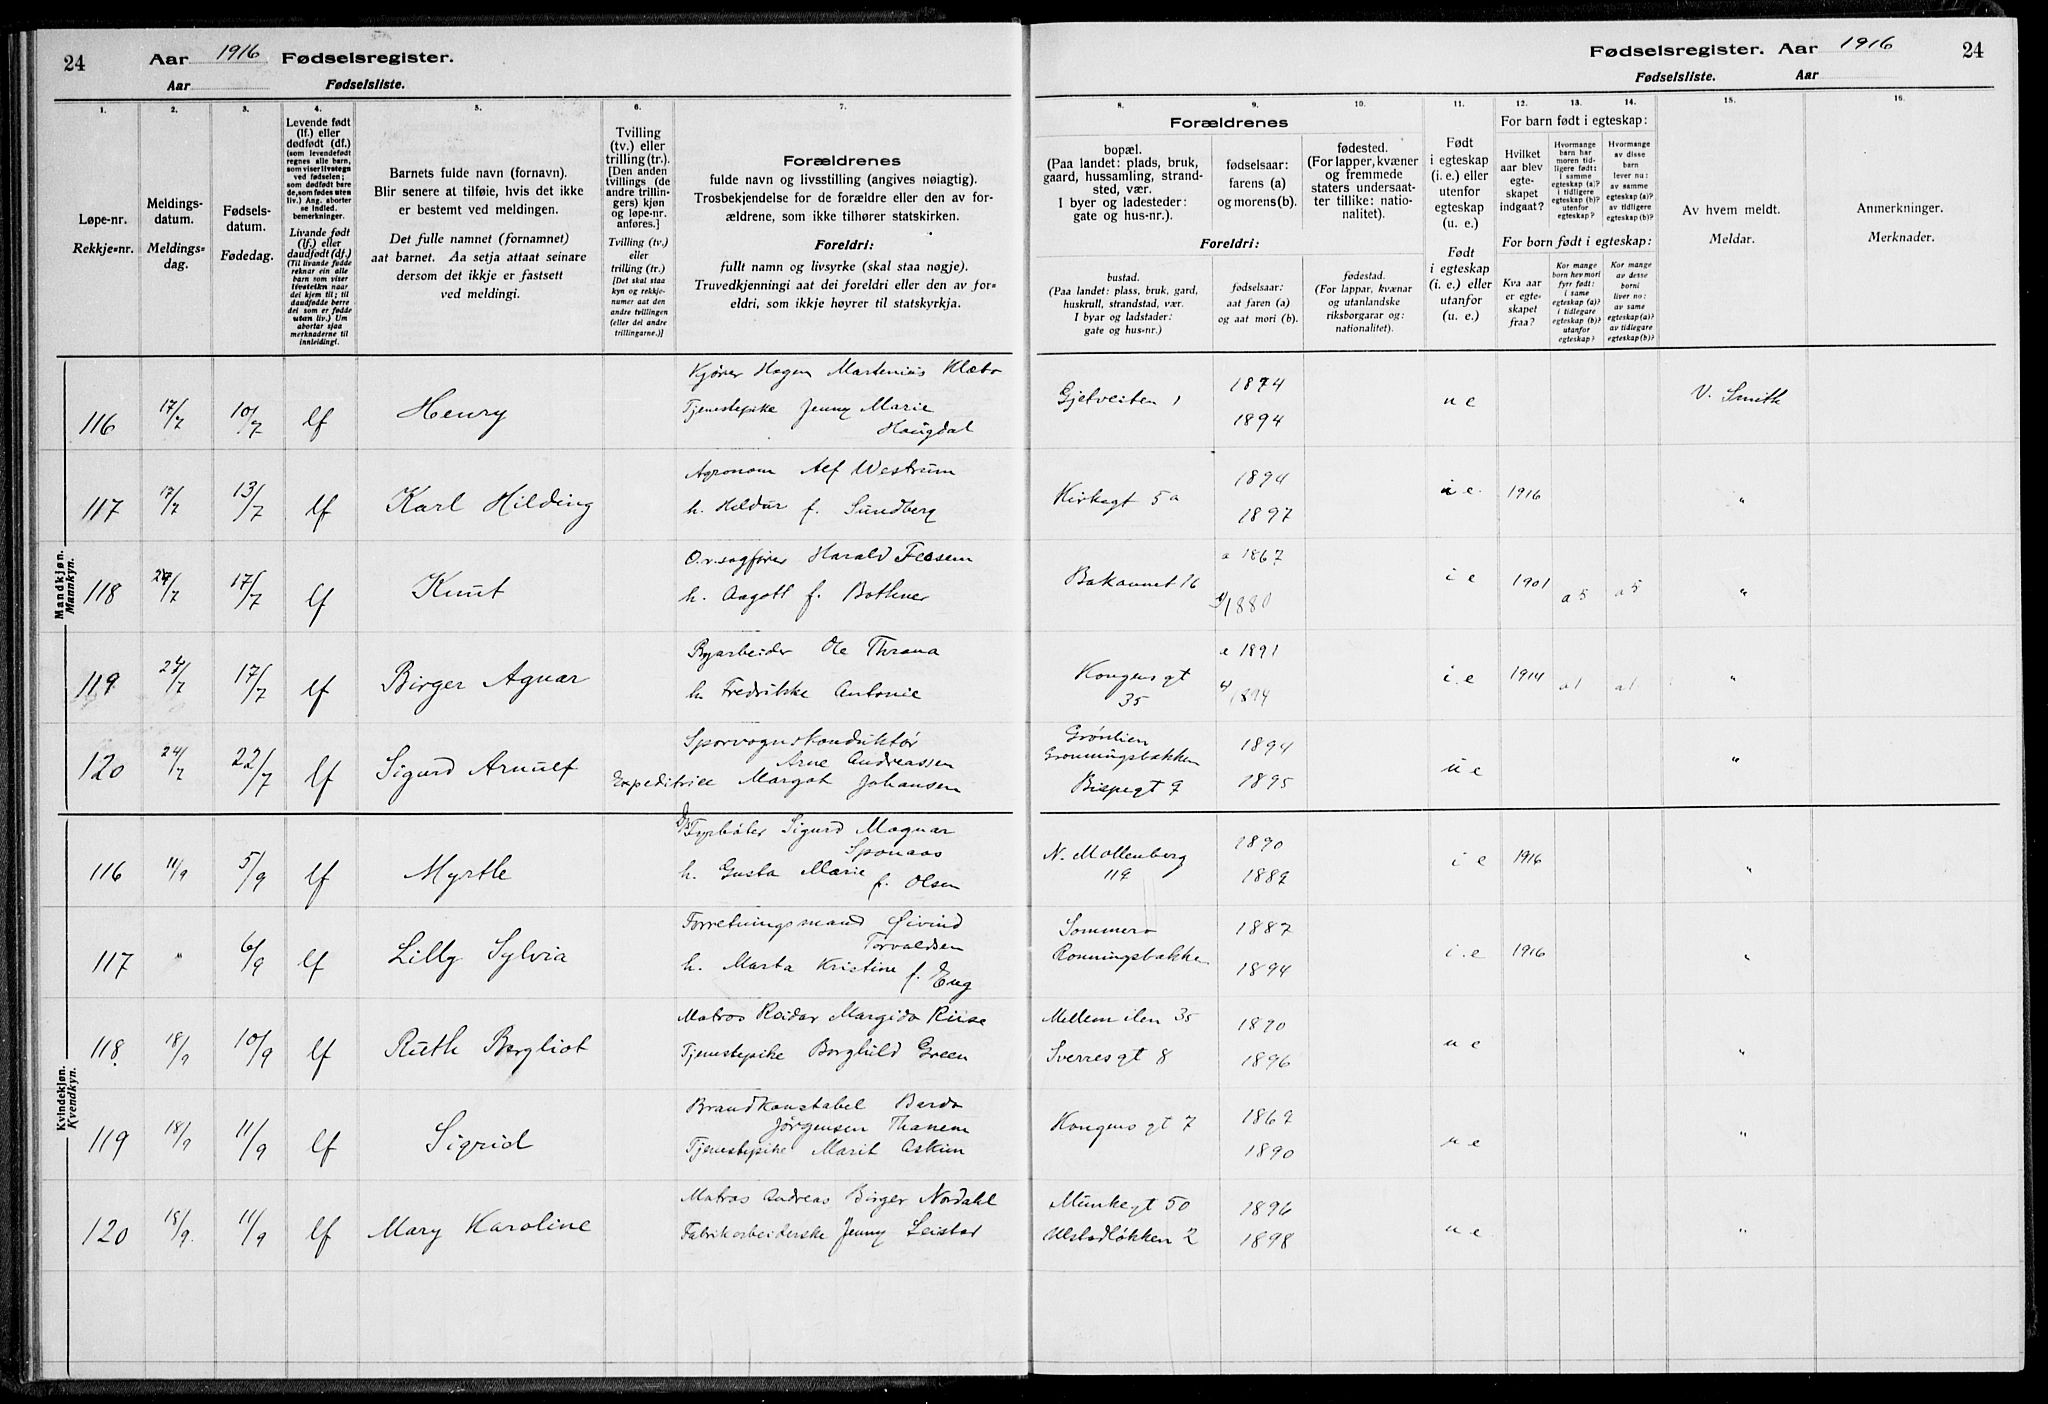 24 Aar 1916 Fødselsregister.
Aar Fødselsliste.
Fødselsregister. Aar 1916 24
Fødselsliste. Aar
1. 2. 3. 4. 5. 6. 7.
Løpe-nr.
Rekkje-nr.
Meldings-
datum.
Meldings-
dag.
Fødsels-
datum.
Fødedag.
Levende født
(lf.) eller
dødfødt (df.)
(som levendefødt
regnes alle barn,
som viser livstegn
ved fødselen;
som dødfødt bare
de, som fødes uten
liv.) Ang. aborter
se indled.
bemerkninger.
Livande født
(lf.) eller
daudfødt (df.)
(Til livande fødde
reknar ein alle
barn som viser
livsteikn naar
dei kjem til; til
daudfødde berre
dei som er fødde
utan liv.) Um
abortar sjaa
merknaderne til
innleidingi.
Barnets fulde navn (fornavn).
Blir senere at tilføie, hvis det ikke
er bestemt ved meldingen.
Det fulle namnet (fornamnet)
aat barnet. Aa setja attaat seinare
dersom det ikkje er fastsett
ved meldingi.
Tvilling
(tv.) eller
trilling (tr.).
[Den anden
tvillings (de
andre trillin-
gers) kjøn
og løpe-nr.
anføres.]
Tvilling (tv.)
eller
trilling (tr.)
[Det skal staa
kyn og rekkje-
numer aat den
andre tvillingen
(eller dei andre
trillingarne.)]
Forældrenes
fulde navn og livsstilling (angives nøiagtig).
Trosbekjendelse for de forældre eller den av for-
ældrene, som ikke tilhører statskirken.
Foreldri:
fullt namn og livsyrke (skal staa nøgje).
Truvedkjenningi aat dei foreldri eller den av for-
eldri, som ikkje høyrer til statskyrkja.
8. 9. 10. 11. 12. 13. 14. 15. 16.
Forældrenes
bopæl.
(Paa landet: plads, bruk,
gaard, hussamling, strand-
sted, vær.
I byer og ladesteder:
gate og hus-nr.).
fødselsaar:
farens (a)
og morens (b).
fødested.
(For lapper, kvæner
og fremmede
staters undersaat-
ter tillike: natio-
nalitet).
Foreldri:
bustad.
(Paa landet: plass, bruk, gard,
huskrull, strandstad, vær.
I byar og ladstader:
gate og hus-nr.)
fødselsaar:
aat faren (a)
og aat mori (b).
fødestad.
(For lappar, kvænar
og utanlandske
riksborgarar og:
nationalitet).
Født
i egteskap
(i. e.) eller
utenfor
egteskap
(u. e.)
Født
i egteskap
(i. e.) eller
utanfor
(u. e.).
For barn født i egteskap:
Hvilket
aar blev
egte-
skapet
indgaat?
Hvormange
barn har
moren tid-
ligere født:
i samme
egteskap (a)?
i tidligere
egteskap (b)?
utenfor
egteskap?
Hvormange
av disse
barn
lever nu:
av samme
egteskap (a)?
av tidligere
egteskap (b)?
For born født i egteskap:
Kva aar
er egte-
skapet
fraa?
Kor mange
born hev mori
fyrr født:
i same
egteskap (a)?
i tidlegare
egteskap (b)?
utanfor
egteskap?
Kor mange
av desse
borni
liver no:
av same
egteskap (a)?
av tidlegare
egteskap (b)?
Av hvem meldt.
Meldar.
Anmerkninger.
Merknader.
Mandkjøn.
Mannkyn.
116 17/7 10/7 lf Henry Kjører Hagen Martenius Klæbo
Tjenestepike Jenny Marie
Haugdal
Gjetveiten 1 1874 1894 u e V. Smith
117 17/7 13/7 lf Karl Hilding Agronom Alf Westrum
h. Hildur f. Sundberg
Kirkegt 5a 1894 1897 i e. 1916 "
118 24/7 17/7 lf Knut O.r.sagfører Harald
h. Aagott f. Bothner
Bakaunet 16 a 1867 1880 i e 1901 a 5 a 5 "
119 24/7 17/7 lf Birger Agnar Byarbeider Ole Thrana
h. Fredrikke Antonie
Kongens gt
35 1891 1894 i. e 1914 a 1 a 1 "
120 24/7 22/7 lf Sigurd Arnulf Sporvognskonduktør
Arne Andreassen
Expeditrice Margot Johansen
Grønlien
Grønningsbakken
Bispegt 9 1894 1895 u e "
Kvindekjøn.
Kvendkyn.
116 11/9 5/9 lf Myrtle Sigurd Magnar
Sponaas
h. Gusta Marie
f. Olsen
N. Møllenberg
119 1890 1889 i e 1916 "
117 " 6/9 lf Lilly Sylvia Forretningsmand Øivind
Torvaldsen
h. Marta Kristine
f. Eng
Sommero
Rønningsbakken 1887 1894 i. e 1916 "
118. 18/9 10/9 lf Ruth Bergliot Matros Reidar Margido Riise
Tjenestepike Borghild Green
Mellem ilen 35
Sverresgt 8 1890 1896 u e "
119 18/9 11/9 lf Sigrid Brandkonstabel Bardo
Jørgensen Thanem
Tjenestepike Marit Askim
Kongens gt 7 1869 1890 u e "
120 18/9. 11/9 lf Mary Karoline Matros Andreas Birger Nordahl
Fabrikarbeiderske Jenny Leistad
Munkegt 50
Ulstadløkken 2 1896 1898 u e "